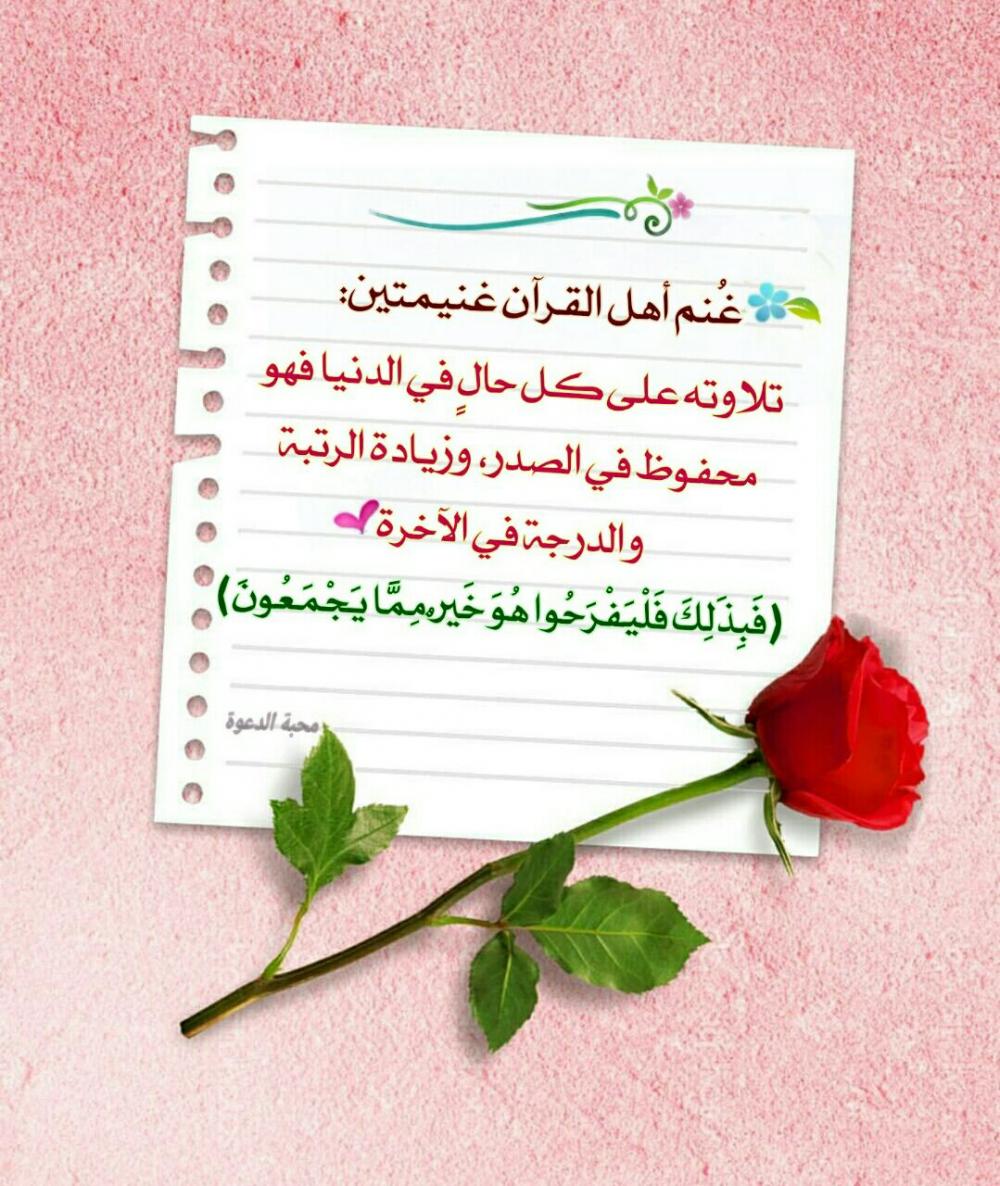 غُنم أهل القرآن غنيمتين:
تلاوته على كل حالٍ في الدنيا فهو
محفوظ في الصدر، وزيادة الرتبة
والدرجة في الآخرة
(فَبِذَلِكَ فَلْيَفْرَحُوا هُوَ خَيرٌ مِمَّا يَجْمَعُونَ)
محبة الدعوة